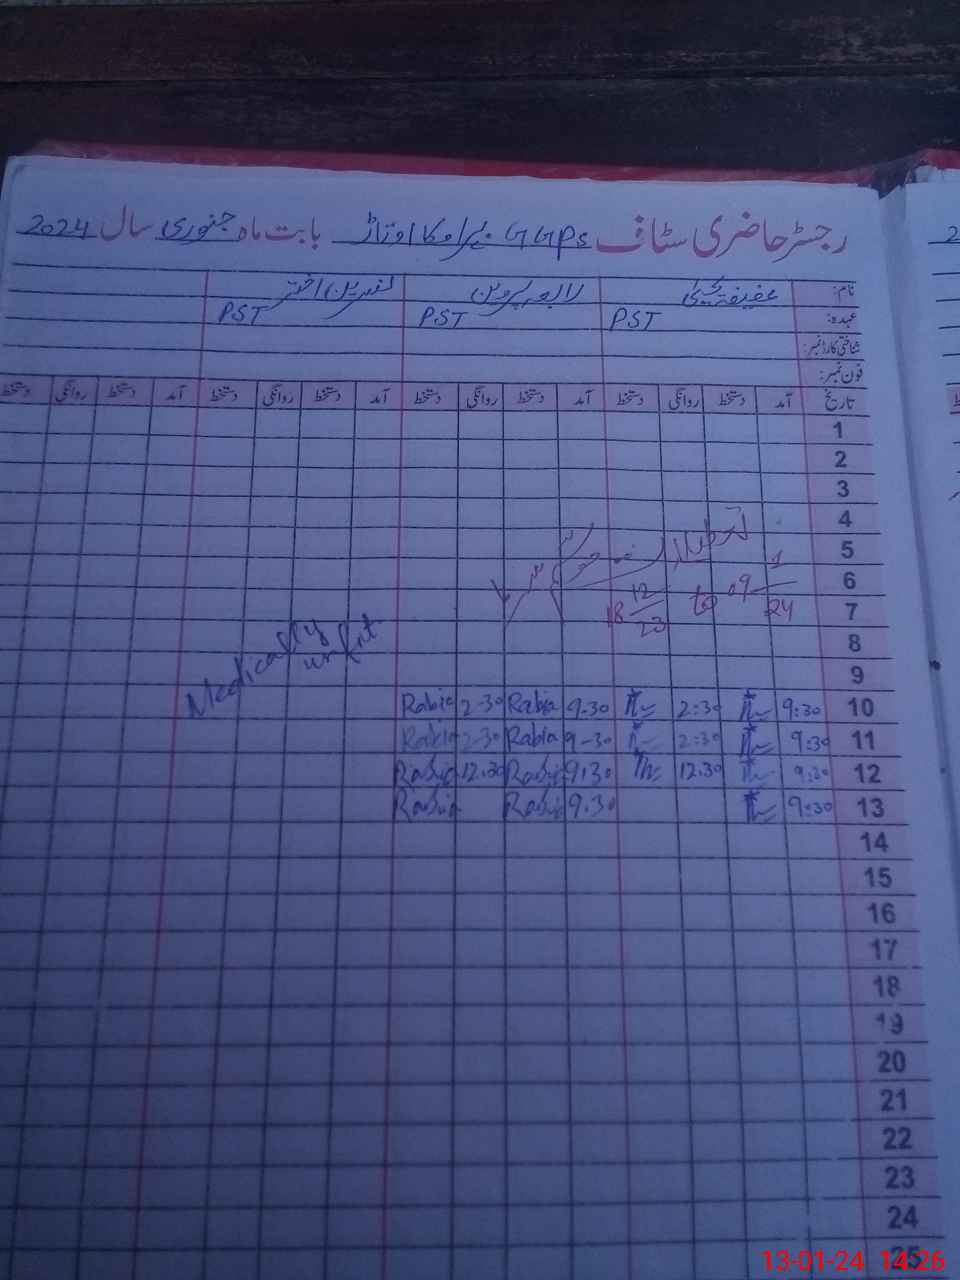 رجسٹر حاضری سٹاف GGPS بابت ماہ جنوری سال 2024
نام: رابعہ پروین
عہدہ: PST PST PST
شناختی کارڈ نمبر:
فون نمبر:
تاریخ آمد دستخط روانگی دستخط آمد دستخط روانگی دستخط آمد دستخط روانگی دستخط آمد دستخط روانگی دستخط
1
2
3
4
5
6
7
8
9
18 12/23 to 09 1/24
Medically unfit
10 9:30 2:30 9.30 Rabia 2-30 Rabia
11 9:30 2:30 9-30 Rabia 2-30 Rabia
12 9:30 12.30 9.30 Rabia 12.30 Rabia
13 9:30 9.30 Rabia Rabia
14
15
16
17
18
19
20
21
22
23
24
25
13-01-24 14:26